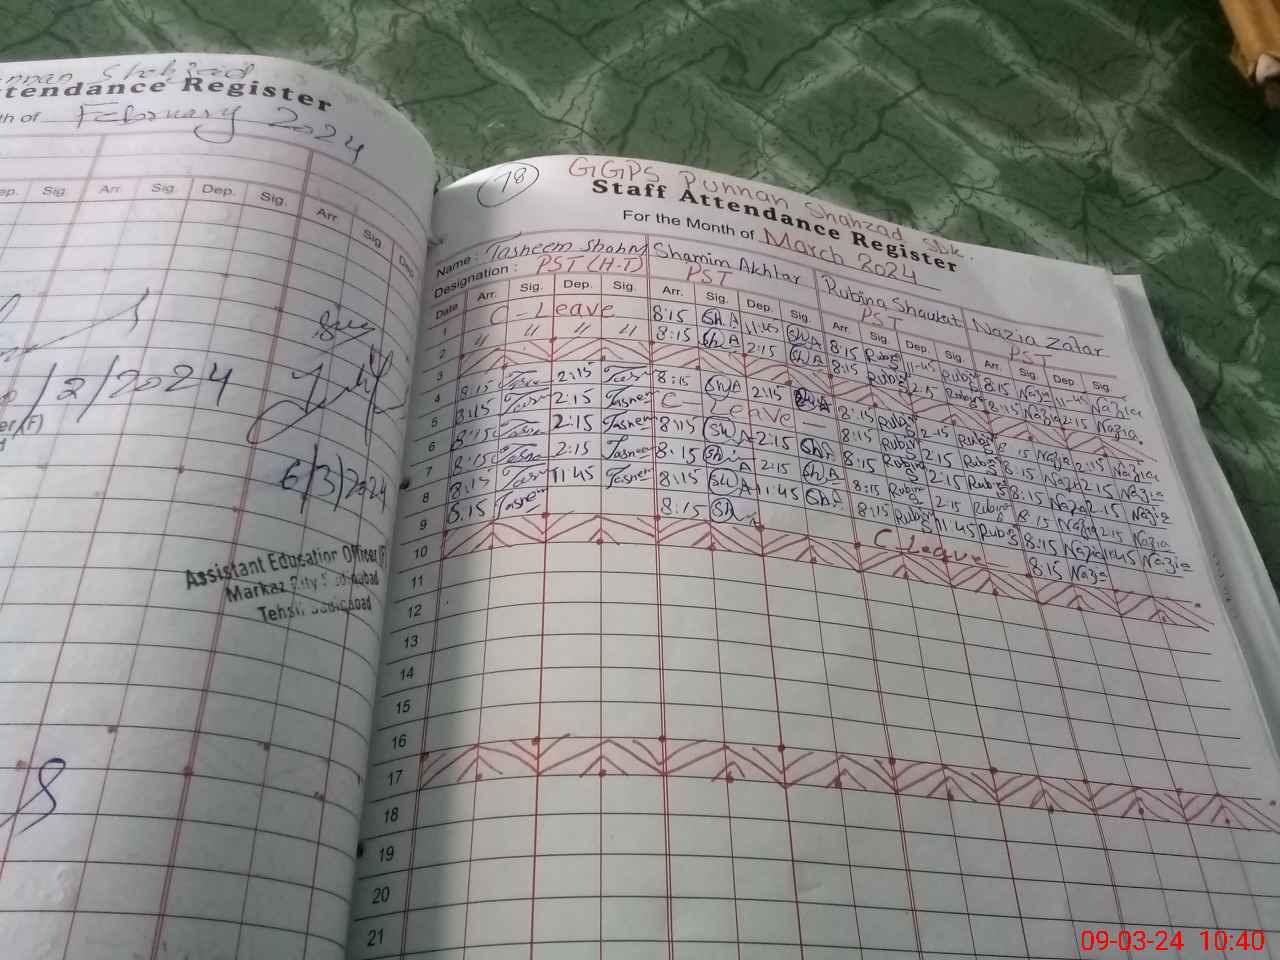 Attendance Register
February 2024
Sig. Arr. Sig. Dep. Sig. Arr. Sig. Dep.
/2/2024
6/3/2024
Assistant Education Officer (F)
Tehsil
8
18
GGPS Punnan Shahzad SDK.
Staff Attendance Register
For the Month of March 2024
Name: Tasneem Shamim Akhtar Rubina Shaukat Nazia Zafar
Designation: PST (H-T) PST PST PST
Date Arr. Sig. Dep. Sig. Arr. Sig. Dep. Sig. Arr. Sig. Dep. Sig. Arr. Sig. Dep. Sig.
1 C-Leave 8:15 Sh.A 11:45 Sh.A 8:15 Rubi 11:45 Rubi 8:15 Nazia 11:45 Nazia
2 " " " " 8:15 Sh.A 2:15 Sh.A 8:15 Rubi 2:15 Rubi 8:15 Nazia 2:15 Nazia
3
4 8:15 2:15 8:15 Sh.A 2:15 8:15 Rubi 2:15 Rubi 8:15 Nazia 2:15 Nazia
5 8:15 2:15 Tasnem C-Leave 8:15 Rubi 2:15 Rubi 8:15 Nazia 2:15 Nazia
6 8:15 2:15 Tasnem 8:15 Sh.A 2:15 Sh.A 8:15 Rubi 2:15 Rubi 8:15 Nazia 2:15 Nazia
7 8:15 2:15 Tasnem 8:15 Sh.A 2:15 Sh.A 8:15 Rubi 2:15 Rubi 8:15 Nazia 2:15 Nazia
8 8:15 11:45 Tasnem 8:15 Sh.A 11:45 Sh.A 8:15 Rubi 11:45 Rubi 8:15 Nazia 11:45 Nazia
9 8:15 Tasnem 8:15 Sh.A C-Leave 8:15 Nazia
10
11
12
13
14
15
16
17
18
19
20
21
09-03-24 10:40